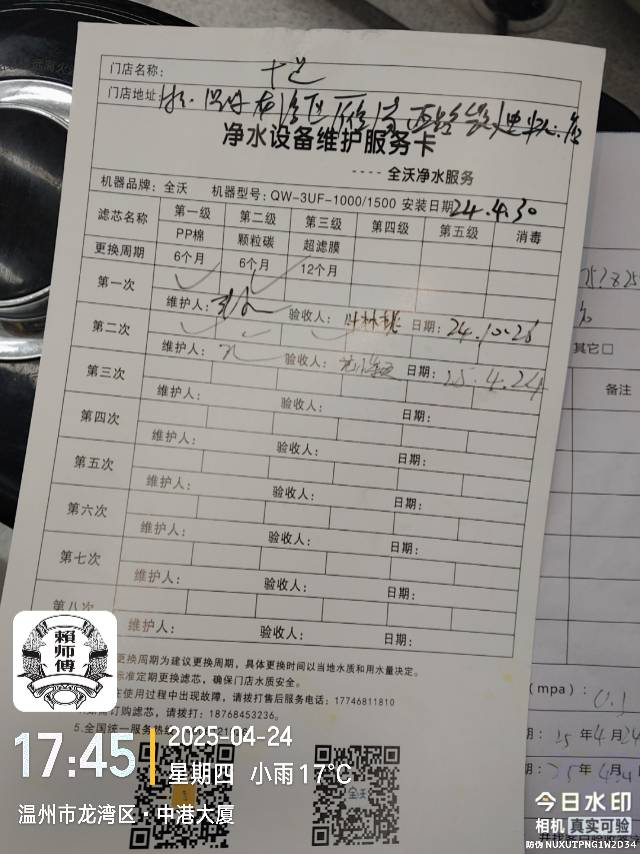 门店名称:
门店地址:
净水设备维护服务卡
---- 全沃净水服务
机器品牌: 全沃 机器型号: QW-3UF-1000/1500 安装日期 24.4.30
滤芯名称 第一级 第二级 第三级 第四级 第五级 消毒
PP棉 颗粒碳 超滤膜
更换周期 6个月 6个月 12个月
第一次
维护人: 验收人: 日期: 24.10.26
第二次
维护人: 验收人: 日期: 25.4.24
第三次
维护人: 验收人: 日期:
第四次
维护人: 验收人: 日期:
第五次
维护人: 验收人: 日期:
第六次
维护人: 验收人: 日期:
第七次
维护人: 验收人: 日期:
第八次
维护人: 验收人: 日期:
更换周期为建议更换周期,具体更换时间以当地水质和用水量决定。
标准定期更换滤芯,确保门店水质安全。
在使用过程中出现故障,请拨打售后服务电话: 17746811810
订购滤芯,请拨打: 18768453236。
5.全国统一服务热
其它□
备注
(mpa): 0.1
期: 25年4月24
期: 25年4月
賴师傅
17:45
2025-04-24
星期四 小雨 17℃
温州市龙湾区·中港大厦
今日水印
相机 真实可验
防伪 NUXUTPNG1W2D34